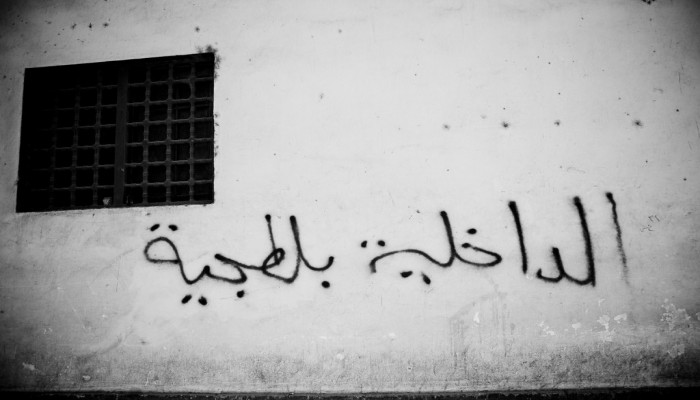 الداخلية بلطجية